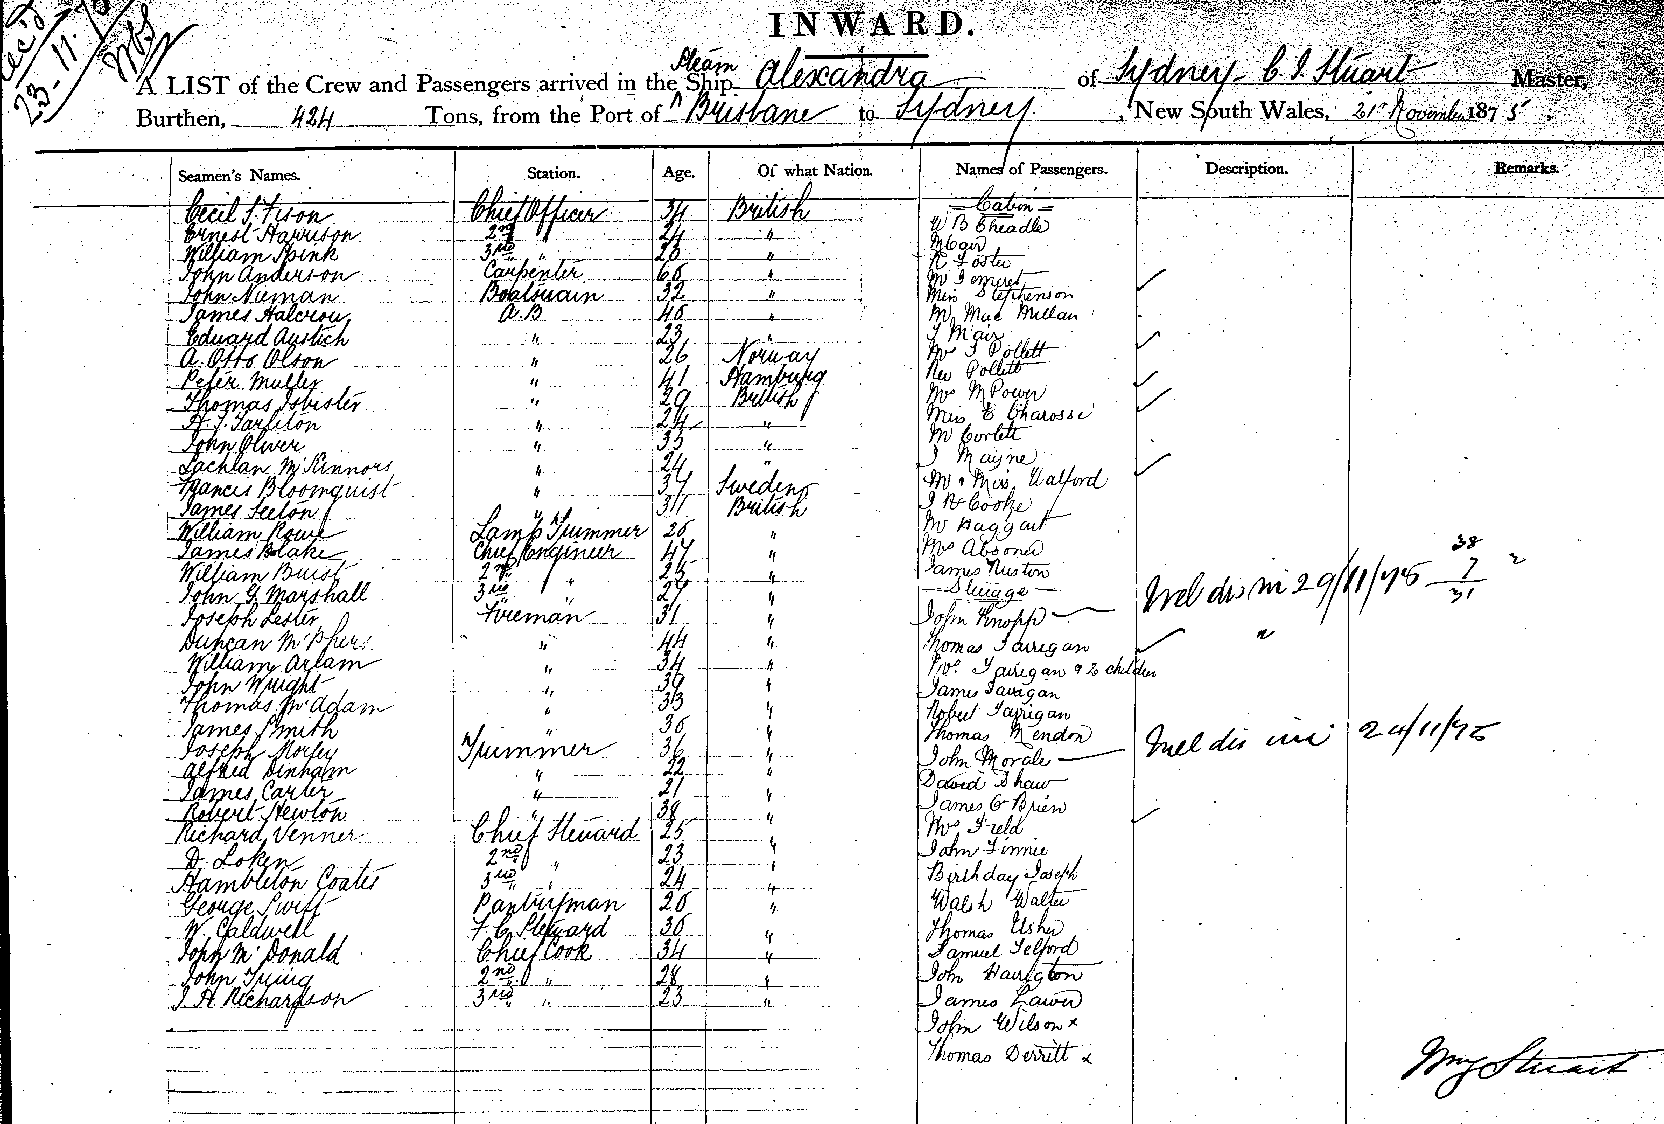 Rec'd
23.11.75
INWARD.
A LIST of the Crew and Passengers arrived in the Steam Ship Alexandra of Sydney C J Stuart Master,
Burthen, 424 Tons, from the Port of Brisbane to Sydney, New South Wales, 21st November 1875.
Seamen's Names. Station. Age. Of what Nation. Names of Passengers. Description. Remarks.
Cecil S. Fison Chief Officer 34 British
Ernest Harrison 2nd " 24 "
William Spink 3rd " "
John Anderson Carpenter "
John Nieman Boatswain 32 "
James Halcrow A.B "
Edward "  23 "
A. Otto Olson " 26 Norway
Peter Muller " 41 Hamburg
Thomas Isbister " 29 British
H. J. Tarleton " 24 "
John Oliver " 33 "
Lachlan McKinnon " 24 "
Francis Bloomquist " 37 Sweden
James Seeton " British
William Rowe Lamp Trimmer "
James Blake Chief Engineer 47 "
William Buist 2nd " "
John G Marshall 3rd " 29 "
Joseph Lester Fireman 31 "
Duncan " 44 "
William " 34 "
John Wright " 39 "
Thomas McAdam " 33 "
James Smith " "
Joseph Morley Trimmer 36 "
Alfred Dinham " 22 "
James Carter " 21 "
Robert Newton " 38 "
Richard Venner Chief Steward 25 "
D. Loken 2nd " 23 "
Hambleton Coates 3rd " 24 "
George Swift Pantryman "
W. Caldwell F.C. Steward "
John McDonald Chief Cook 34 "
John 2nd " 28 "
J H Richardson 3rd " 23 "
Cabin
W B Cheadle
R Foster
Miss Stephenson
Mr Mac Millan
J Mair
Mrs J Pollett
Rev Pollett
Mrs M Power
Miss E
Mr Corlett
J Mayne
Mr & Miss Walford
J R Cooke
Mr Haggart
Mrs
James Ruston
Steerage
John Knopp Mel dis 29/11/75 38
7
31
Thomas Farregan "
Mrs Farregan & 2 children
James Farregan
Robert Farregan
Thomas Rendon
John Morale Mel dis 29/11/75
David Shaw
James O Brien
Mrs Field
John Finnie
Birthday Joseph
Walsh Walter
Thomas Usher
Samuel Telford
John Harrigton
James Lawer
John Wilson x
Thomas Derritt x
Stuart